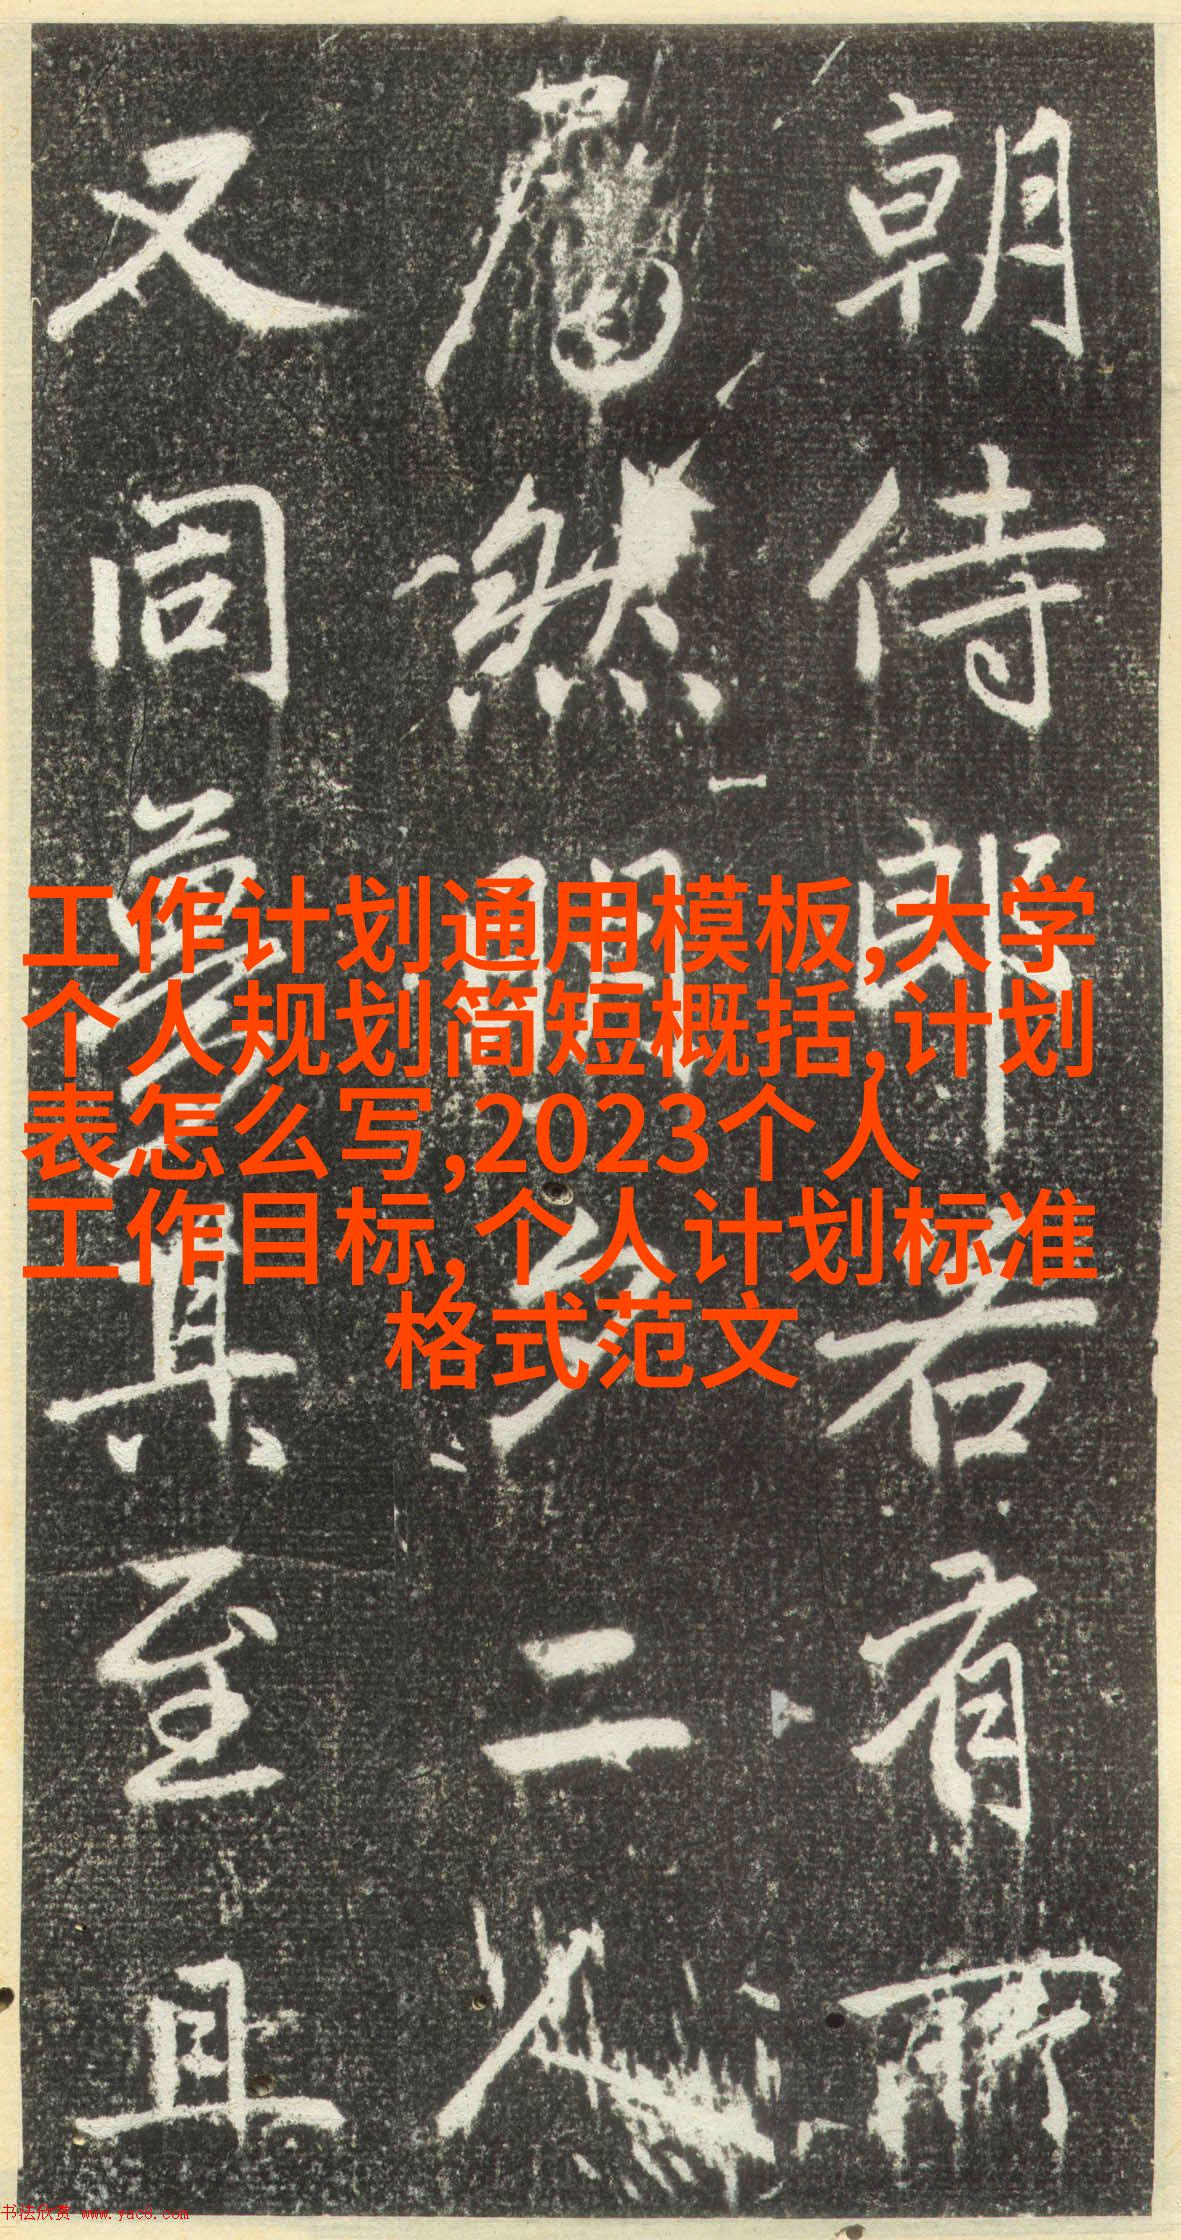 朝侍郎若有所
然明二人
又同真至且
工作计划通用模板,大学
个人规划简短概括,计划
表怎么写,2023个人
工作目标,个人计划标准
格式范文
书法欣赏 www.yac8.com